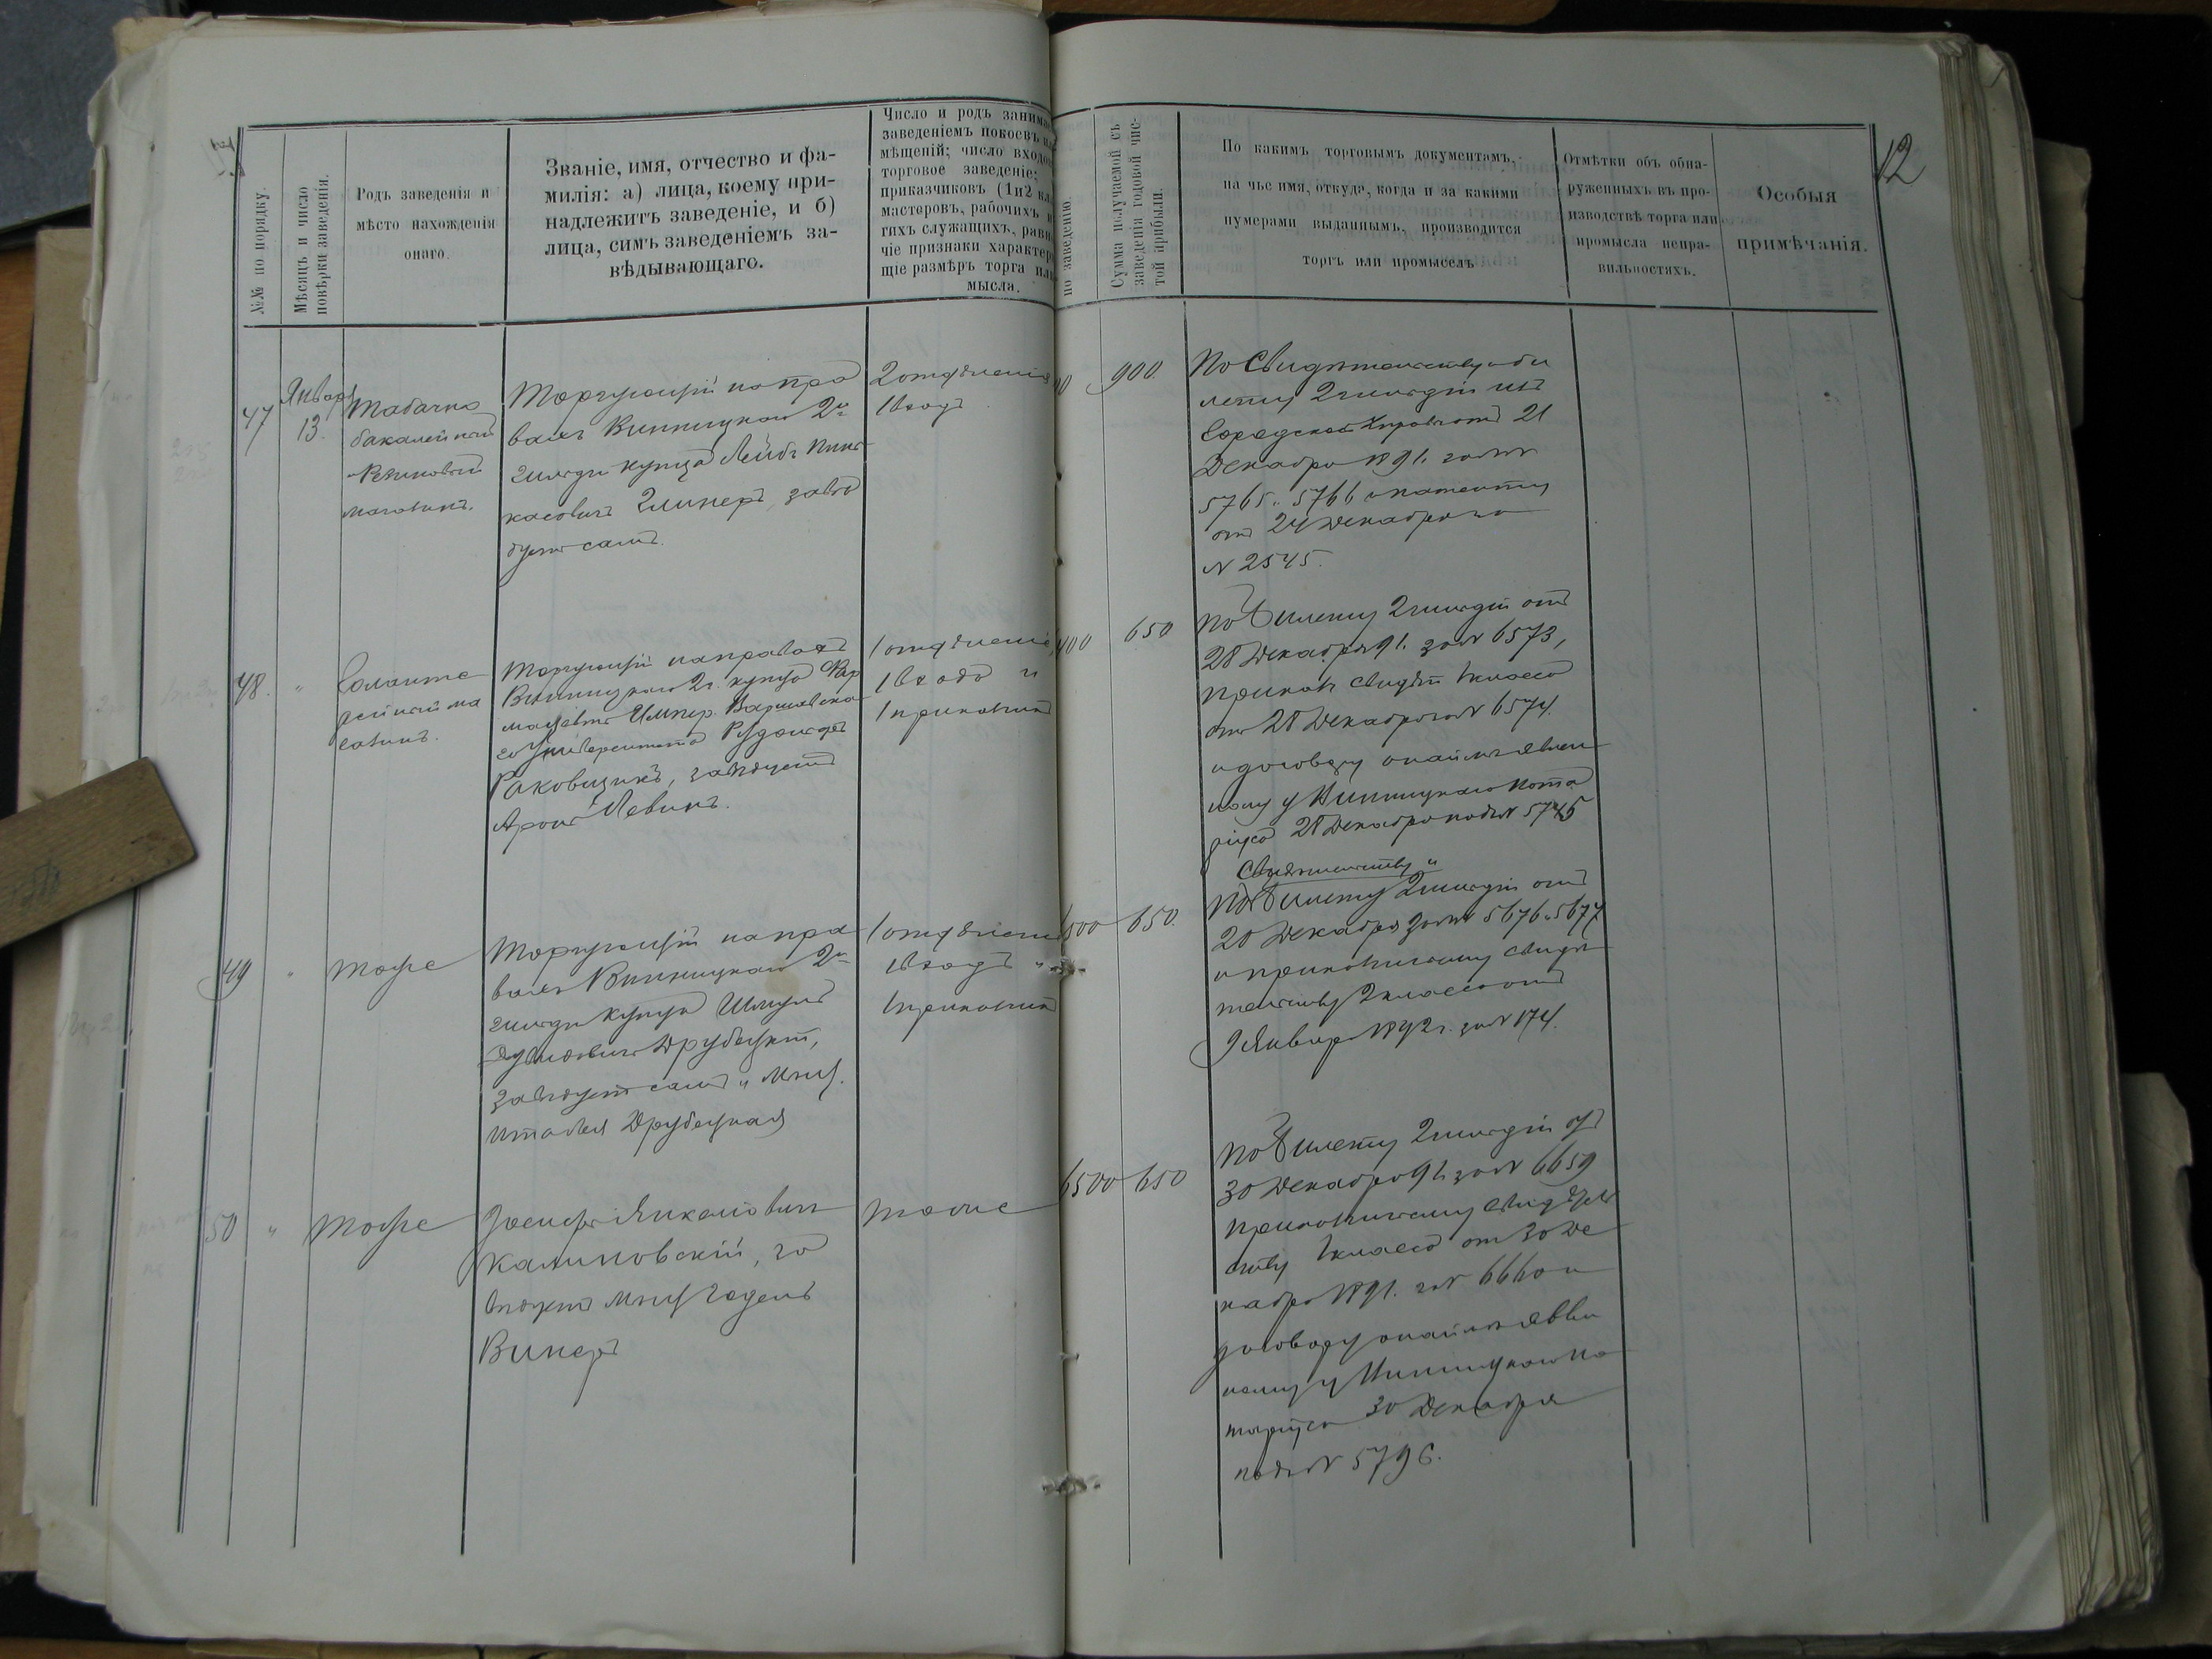 12
№№ по порядку.
Мѣсяцъ и число
повѣрки заведенія.
Родъ заведенія и
мѣсто нахожденія
онаго.
Званіе, имя, отчество и фа-
милія: а) лица, коему при-
надлежитъ заведеніе, и б)
лица, симъ заведеніемъ за-
вѣдывающаго.
Число и родъ занима
заведеніемъ покоевъ и
мѣщеній; число входо
торговое заведеніе;
приказчиковъ (1 и 2 кл.
мастеровъ, рабочихъ и
гихъ служащихъ, равн
чіе признаки характер
щіе размѣръ торга или
мысла.
по заведенію.
Сумма получаемой съ
заведенія годовой чис-
той прибыли.
По какимъ торговымъ документамъ,
на чье имя, откуда, когда и за какими
нумерами выданнымъ, производится
торгъ или промыселъ
Отмѣтки объ обна-
руженныхъ въ про-
изводствѣ торга или
промысла непра-
вильностяхъ.
Особыя
примѣчанія.
47
Января
13.
Табачно
бакалейный
магазинъ.
Торгующій на пра
вахъ Винницкаго 2й
гильдіи купца Лейбъ Пин
касовичъ завѣ
дуетъ самъ.
2 отдѣленія
1 входъ
00
900.
По Свидѣтельству и би
лету 2 гильдіи изъ
Городской Управы отъ 21
Декабря 1891. за №№
5765 и 5766 и патенту
отъ 24 Декабря за
№ 2545.
48.
"
Галанте
рейный ма
газинъ.
Торгующій на правахъ
Винницкаго 2 г. купца Фар
мацевтъ Импер. Варшавска
го Университета Рудольфъ
Раковщикъ, завѣдуетъ
Аронъ Левинъ.
1 отдѣленіе,
1 входъ и
1 приказчикъ
400
650
По билету 2 гильдіи отъ
28 Декабря 91. за № 6573,
приказ. свидѣт. 1 класса
отъ 28 Декабря за № 6574.
и договору о наймѣ явлен
ному у Винницкаго Нота
ріуса 28 Декабря подъ № 5745
49
"
Тоже
Торгующій на пра
вахъ Винницкаго 2й
гильдіи купца Шмуль
Друбецкій,
завѣдуетъ самъ и мѣщ.
Друбецкая
1 отдѣленіе
1 входъ и
1 приказчикъ
500
650.
Свидѣтельству и
По билету 2 гильдіи отъ
20 Декабря за №№ 5676 и 5677
и приказчичьему свидѣ
тельству 2 класса отъ
9 Января 1892 г. за № 174.
50
"
Тоже
Іосифъ
Калиновскій, за
вѣдуетъ мѣщ.
Винеръ
тоже
6500
650
По билету 2 гильдіи отъ
30 Декабря 91 за № 6659
приказчичьему свидѣтель
ству 1 класса отъ 30 Де
кабря 1891. за № 6660 и
договору о наймѣ явлен
ному у Винницкаго Но
таріуса 30 Декабря
подъ № 5796.